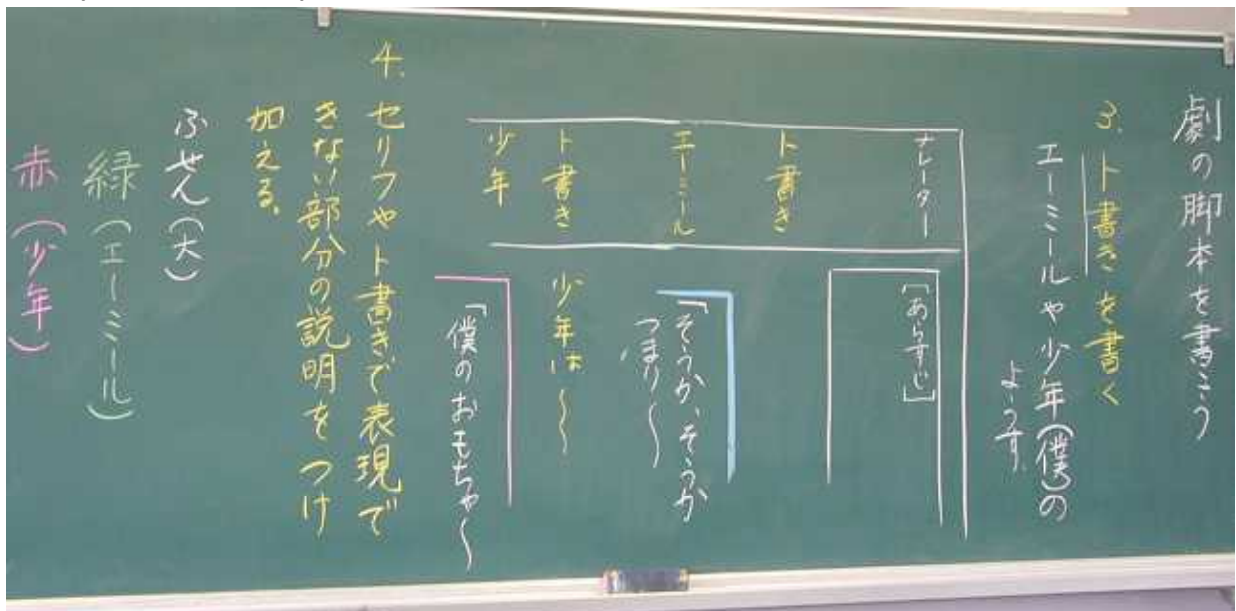 劇の脚本を書こう
3. ト書きを書く
エーミールや少年(僕)の
ようす
ナレーター
[あらすじ]
ト書き
エーミール
「そうか、そうか
つまり〜
ト書き
少年は〜
少年
「僕のおもちゃ〜
4. セリフやト書きで表現で
きない部分の説明をつけ
加える。
ふせん(大)
緑(エーミール)
赤(少年)